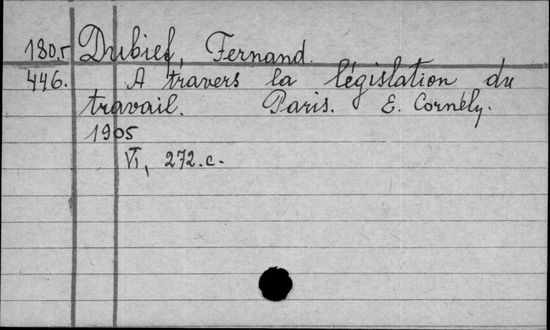 1805 Dubief, Fernand.
446. A travers la législation du
travail. Paris. E. Cornély.
1905
VI, 272.c.